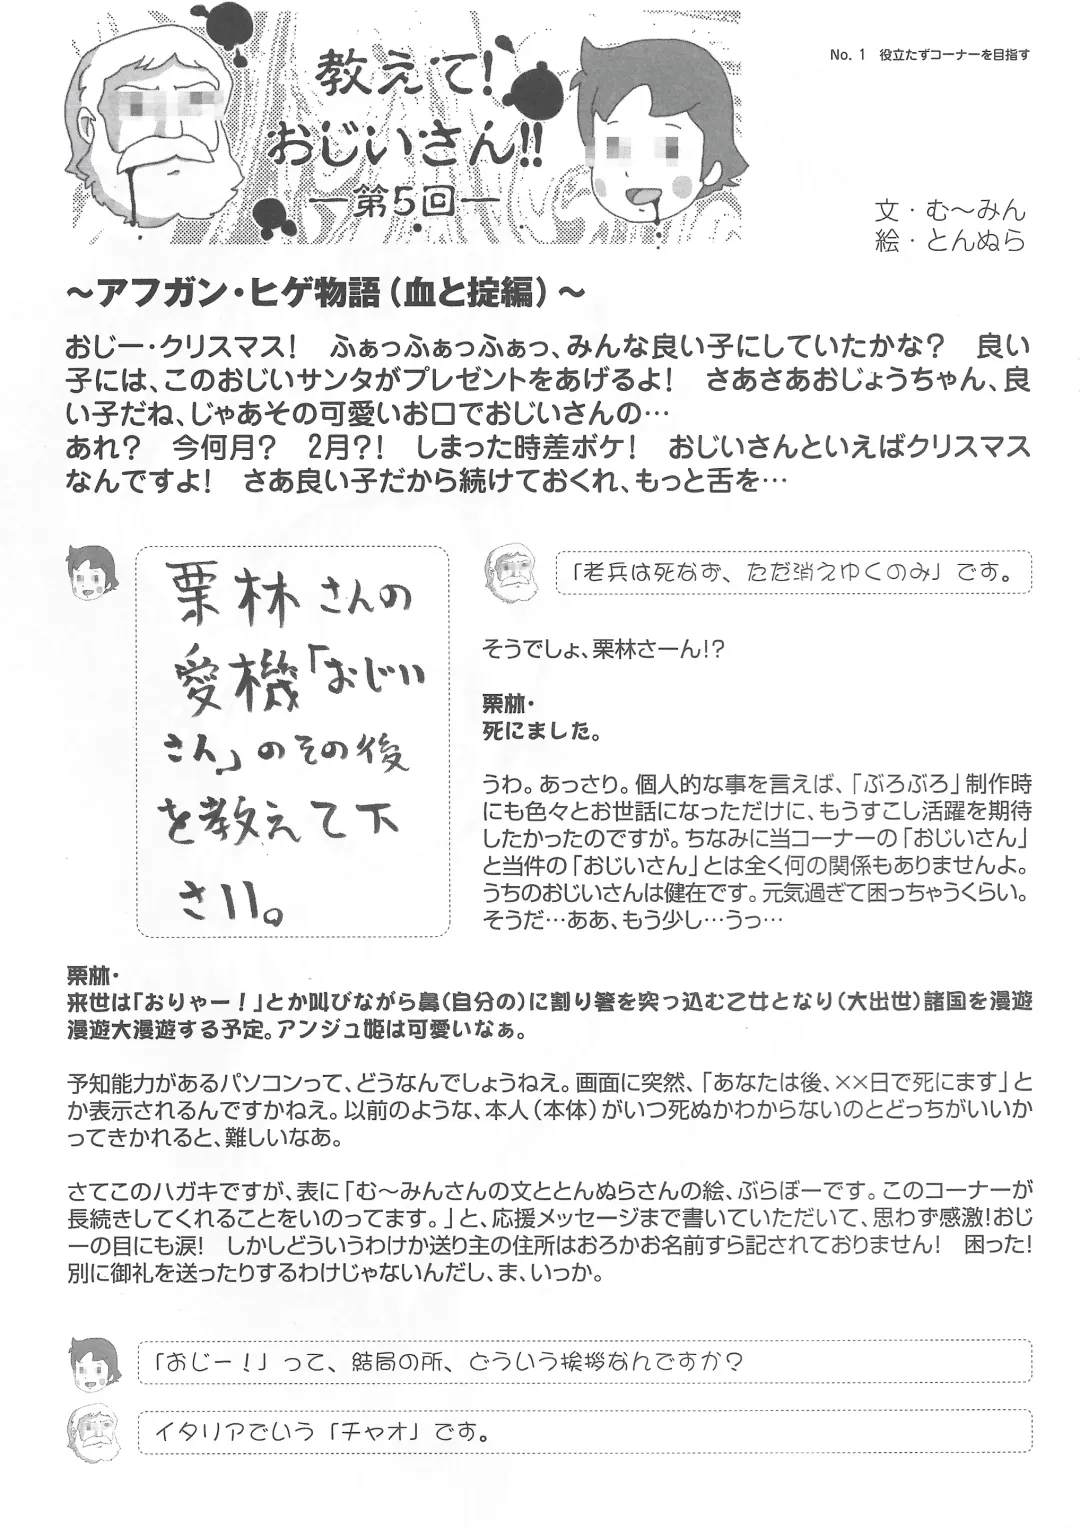 No. 1　役立たずコーナーを目指す
教えて!
おじいさん!!
—第5回—
文・む〜みん
絵・とんぬら
〜アフガン・ヒゲ物語（血と掟編）〜
おじー・クリスマス！　ふぁっふぁっふぁっ、みんな良い子にしていたかな？　良い
子には、このおじいサンタがプレゼントをあげるよ！　さあさあおじょうちゃん、良
い子だね、じゃあその可愛いお口でおじいさんの…
あれ？　今何月？　2月?！　しまった時差ボケ！　おじいさんといえばクリスマス
なんですよ！　さあ良い子だから続けておくれ、もっと舌を…
栗林さんの
愛機「おじい
さん」のその後
を教えて下
さい。
「老兵は死なず、ただ消えゆくのみ」です。
そうでしょ、栗林さーん!?
栗林・
死にました。
うわ。あっさり。個人的な事を言えば、「ぶろぶろ」制作時
にも色々とお世話になっただけに、もうすこし活躍を期待
したかったのですが。ちなみに当コーナーの「おじいさん」
と当件の「おじいさん」とは全く何の関係もありませんよ。
うちのおじいさんは健在です。元気過ぎて困っちゃうくらい。
そうだ…ああ、もう少し…うっ…
栗林・
来世は「おりゃー！」とか叫びながら鼻（自分の）に割り箸を突っ込む乙女となり（大出世）諸国を漫遊
漫遊大漫遊する予定。アンジュ姫は可愛いなぁ。
予知能力があるパソコンって、どうなんでしょうねえ。画面に突然、「あなたは後、××日で死にます」と
か表示されるんですかねえ。以前のような、本人（本体）がいつ死ぬかわからないのとどっちがいいか
ってきかれると、難しいなあ。
さてこのハガキですが、表に「む〜みんさんの文ととんぬらさんの絵、ぶらぼーです。このコーナーが
長続きしてくれることをいのってます。」と、応援メッセージまで書いていただいて、思わず感激！おじ
ーの目にも涙！　しかしどういうわけか送り主の住所はおろかお名前すら記されておりません！　困った！
別に御礼を送ったりするわけじゃないんだし、ま、いっか。
「おじー！」って、結局の所、どういう挨拶なんですか？
イタリアでいう「チャオ」です。